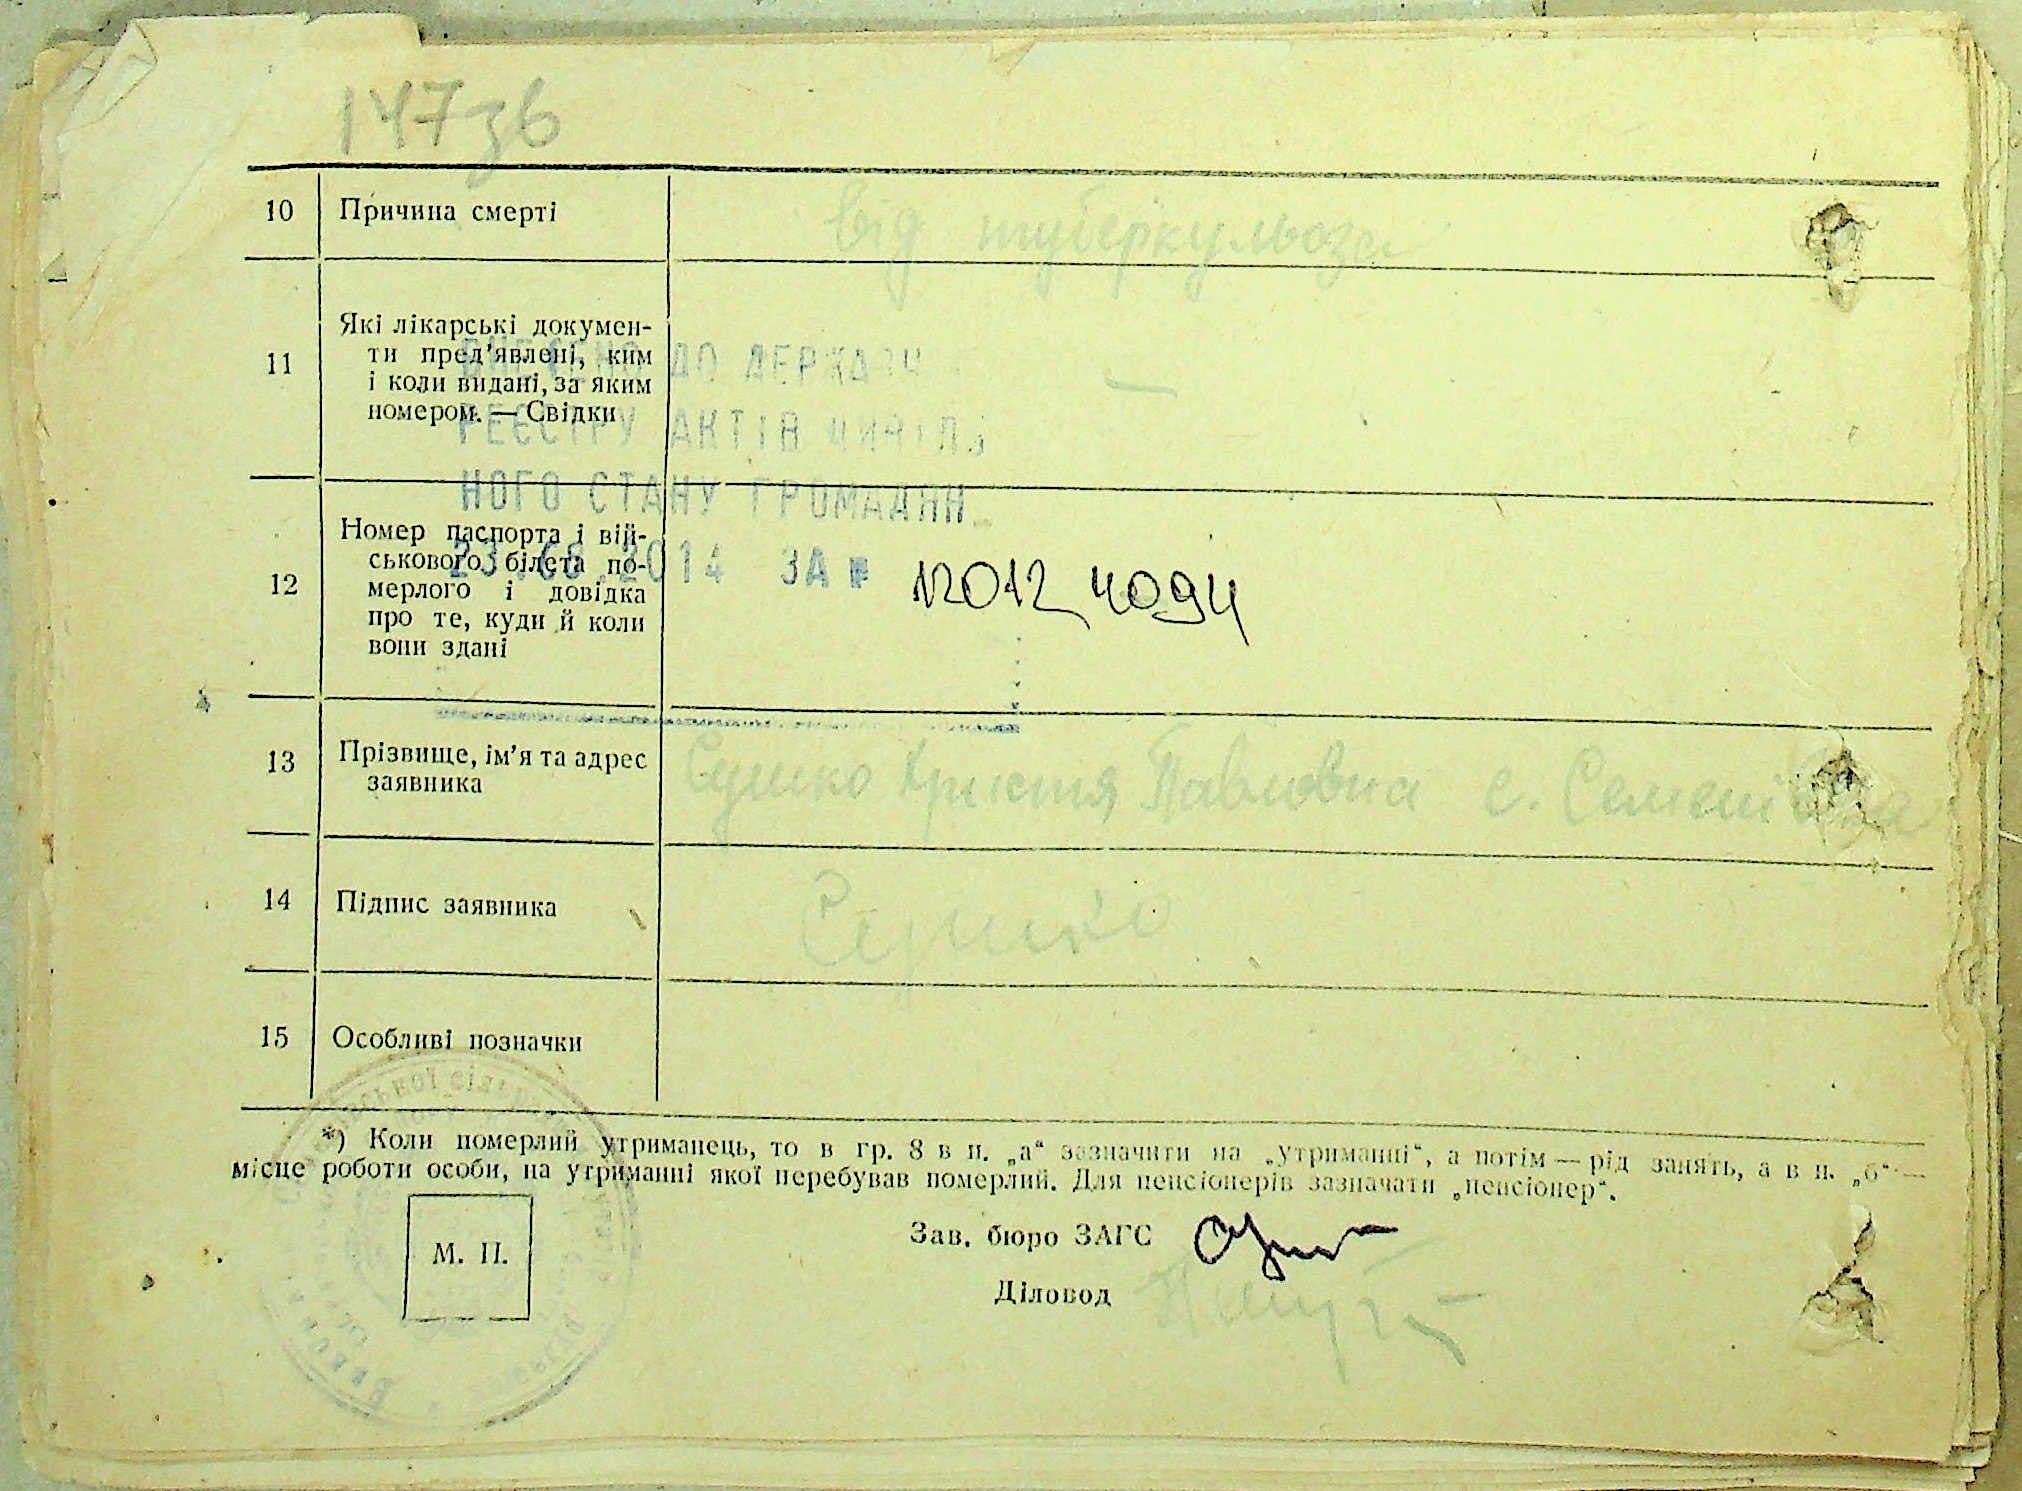 147зв
10 Причина смерті від туберкульоза
11 Які лікарські докумен-
ти пред'явлені, ким
і коли видані, за яким
номером. — Свідки —
ВНЕСЕНО ДО ДЕРЖАВН
РЕЄСТРУ АКТІВ ЦИВІЛЬ
НОГО СТАНУ ГРОМАДЯН
23.08.2014 ЗА № 12012 4094
12 Номер паспорта і вій-
ськового білета по-
мерлого і довідка
про те, куди й коли
вони здані
13 Прізвище, ім'я та адрес
заявника Сушко Христя Павловна с. Семенівка
14 Підпис заявника Сушко
15 Особливі позначки
*) Коли померлий утриманець, то в гр. 8 в п. „а“ зазначити на „утриманні“, а потім — рід занять, а в п. „б“ —
місце роботи особи, на утриманні якої перебував померлий. Для пенсіонерів зазначати „пенсіонер“.
М. П.
Зав. бюро ЗАГС
Діловод